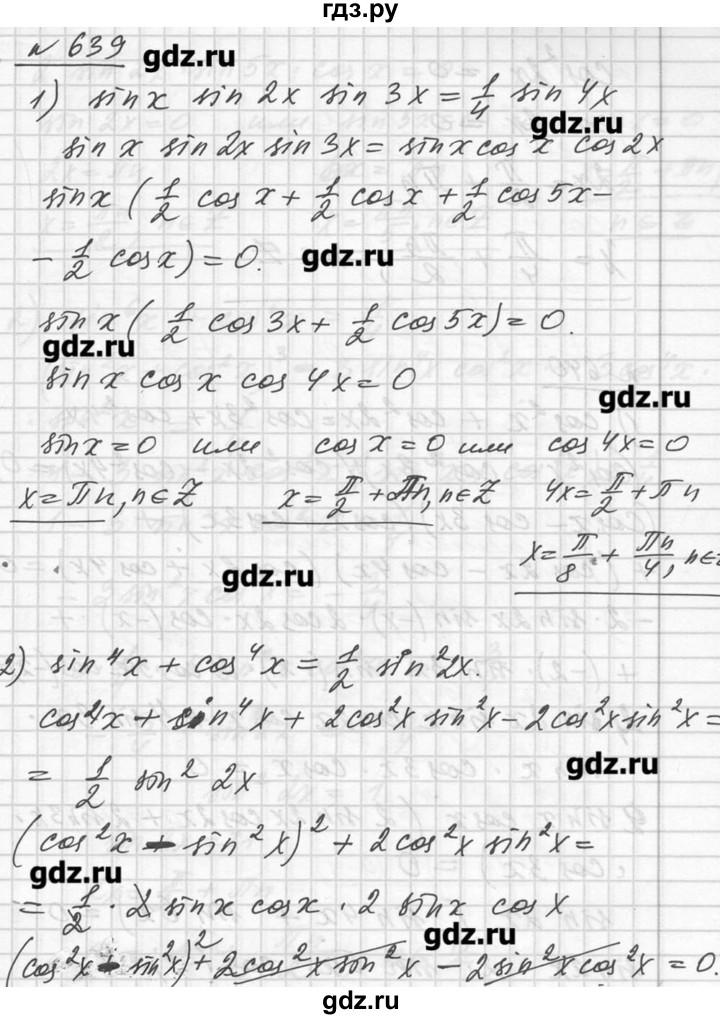 гдз.ру
№ 639
gdz.ru
1) sin x sin 2x sin 3x = 1/4 sin 4x
gdz.ru
sin x sin 2x sin 3x = sin x cos x cos 2x
sin x (1/2 cos x + 1/2 cos x + 1/2 cos 5x –
– 1/2 cos x) = 0.
gdz.ru
sin x (1/2 cos 3x + 1/2 cos 5x) = 0.
gdz.ru
sin x cos x cos 4x = 0
gdz.ru
sin x = 0 или cos x = 0 или cos 4x = 0
x = πn, n∈Z x = π/2 + πn, n∈Z 4x = π/2 + πn
x = π/8 + πn/4, n∈Z
gdz.ru
2) sin⁴x + cos⁴x = 1/2 sin²2x.
cos⁴x + sin⁴x + 2cos²x sin²x – 2cos²x sin²x =
gdz.ru
= 1/2 sin² 2x
(cos²x – sin²x)² + 2cos²x sin²x =
gdz.ru
= 1/2 · 2 sin x cos x · 2 sin x cos x
gdz.ru
(cos²x – sin²x)² + 2cos²x sin²x – 2sin²x cos²x = 0.
gdz.ru